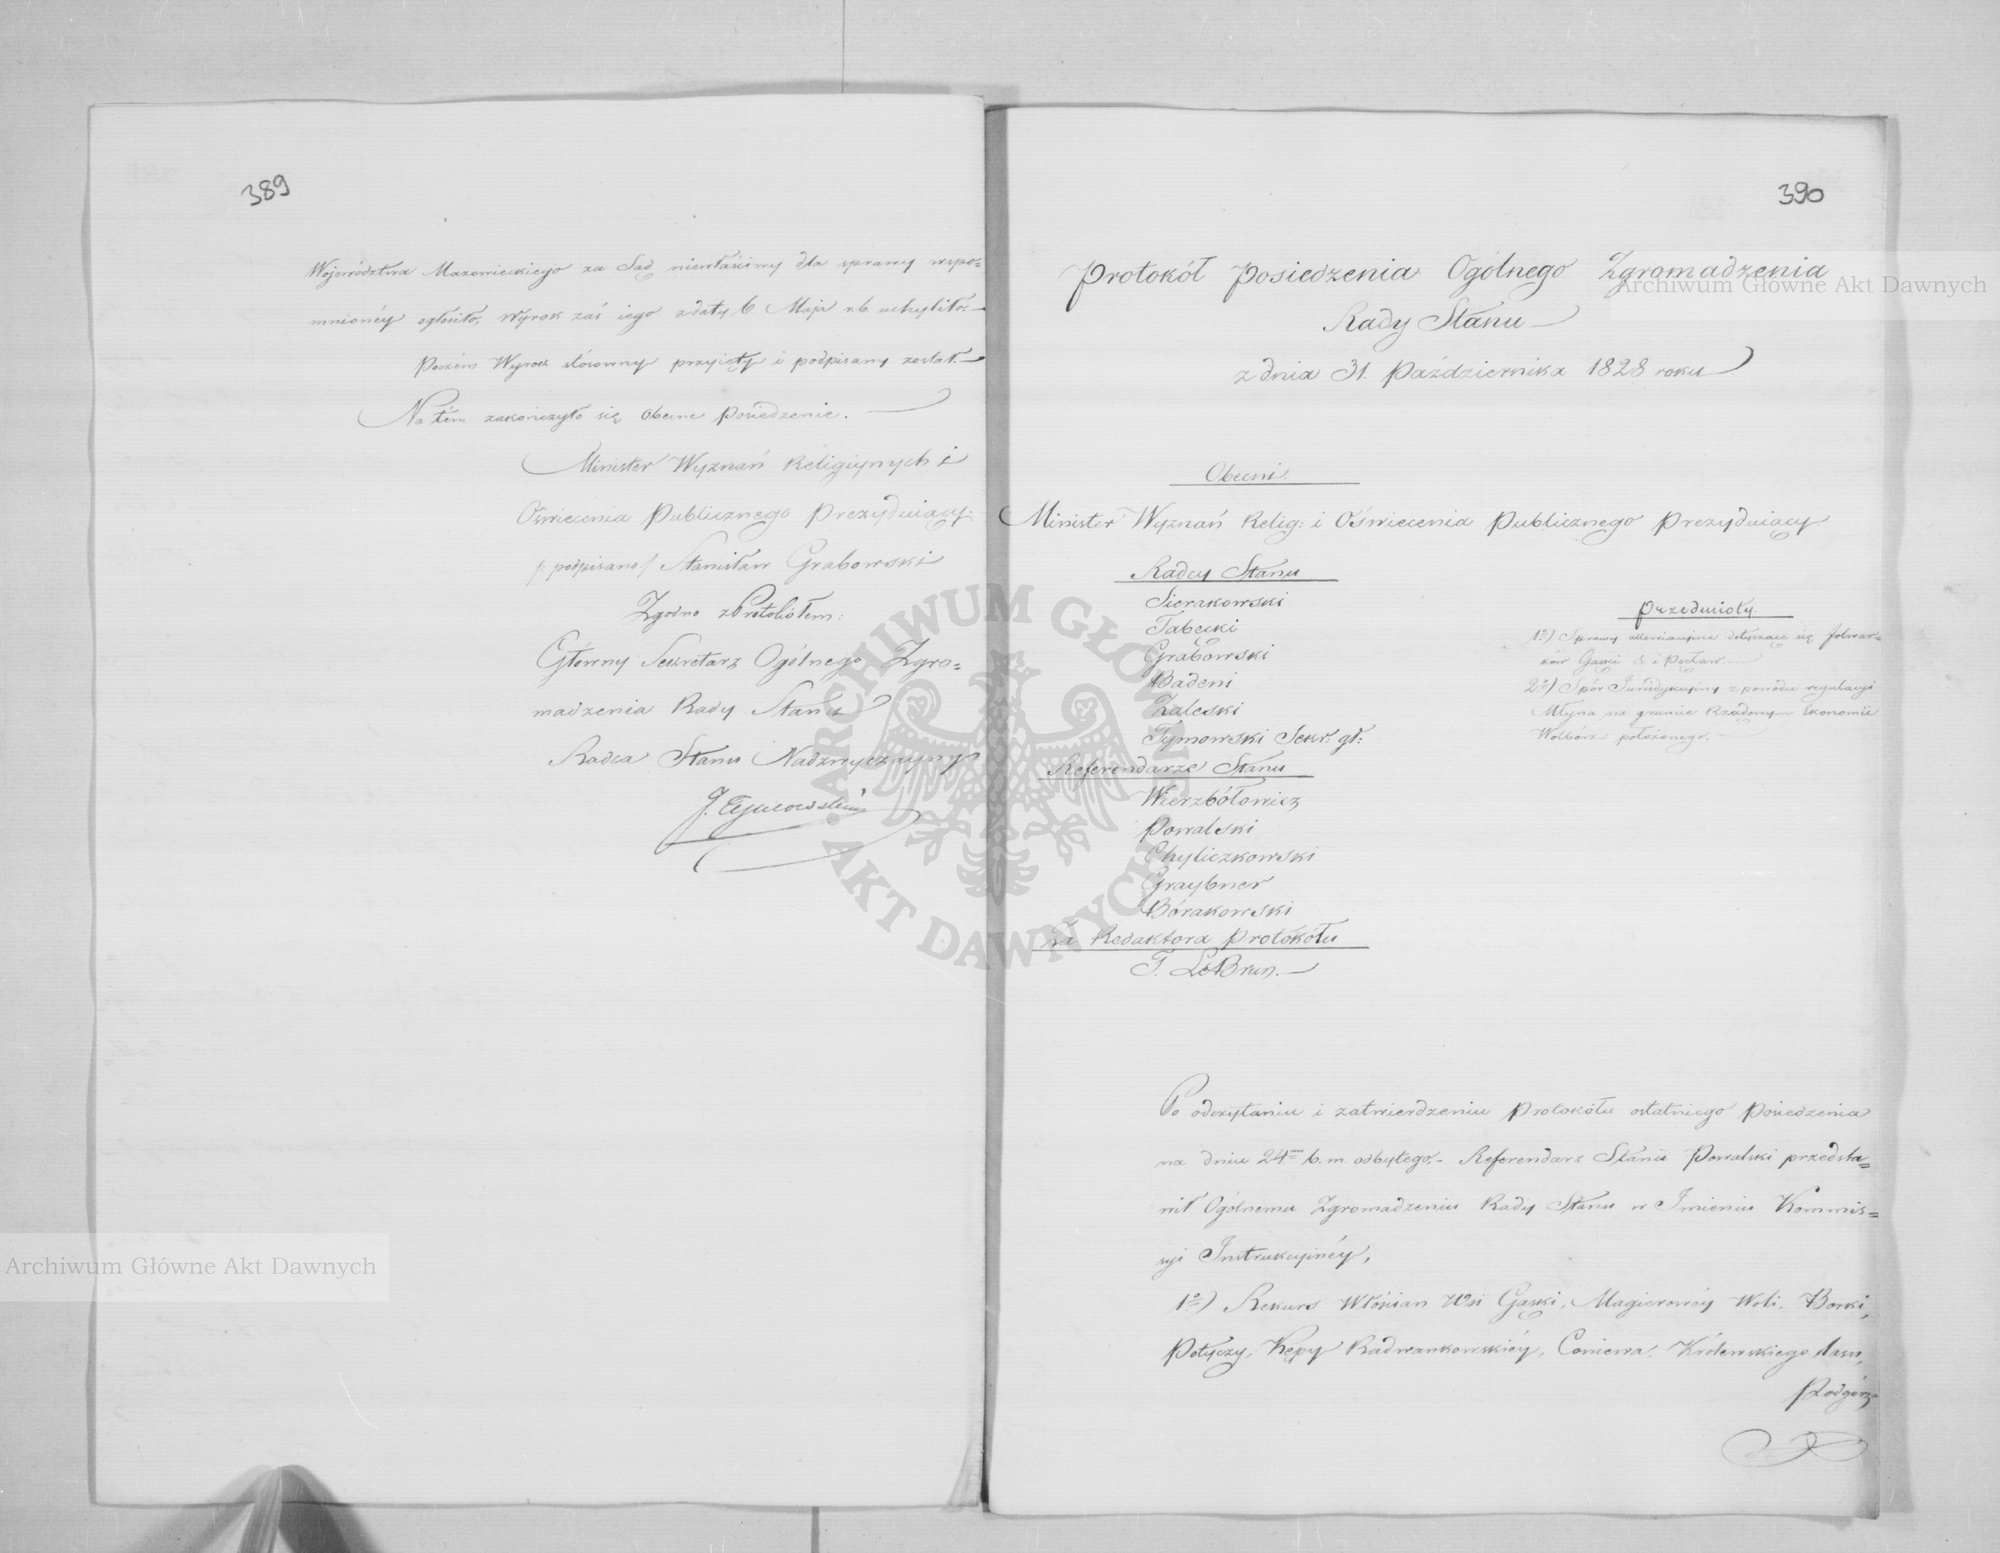 389
Województwa Mazowieckiego za Sąd niewłaściwy dla sprawy wspo=
mnionéy ogłosiło, wyrok zaś iego z daty 6 Maja r.b. uchyliło.—
Poczém Wyrok stósowny przyięty i podpisany został.—
Na tém zakończyło się obecne Posiedzenie.—
Minister Wyznań Religiynych i
Oświecenia Publicznego Prezyduiący:
/: podpisano / Stanisław Grabowski
Zgodno z Protokółem:
Główny Sekretarz Ogólnego Zgro=
madzenia Rady Stanu
Radca Stanu Nadzwyczayny
J. Tymowski
390
Protokół Posiedzenia Ogólnego Zgromadzenia
Rady Stanu—
z dnia 31. Października 1828 roku
Obecni.
Minister Wyznań Relig: i Oświecenia Publicznego Prezyduiący
Radcy Stanu
Sierakowski
Tabęcki
Grabowski
Badeni
Zaleski
Tymowski Sekr. gł:
Referendarze Stanu
Wierzbółowicz
Powalski
Chyliczkowski
Graybner
Bórakowski
za Redaktora Protokółu
F. LeBrun.—
Przedmioty.
1º) Sprawy dotyczące się folwar=
ków Gąski & i Pęcław.—
2º) Spór Jurisdykcyiny z powodu regulacyi
Młyna na gruncie Rządowym Ekonomii
Wolbórz położonego.—
Po odczytaniu i zatwierdzeniu Protokółu ostatniego Posiedzenia
na dniu 24m b. m. odbytego.- Referendarz Stanu Powalski przedsta=
wił Ogólnemu Zgromadzeniu Rady Stanu w Imieniu Kommis=
syi Instrukcyinéy,
1º) Rekurs Włościan Wsi Gąski, Magierowéy Woli, Borki,
Potyczy, Kępy Radwankowskiéy, Coniewa, Królewskiego lasu,
Podgórza
Archiwum Główne Akt Dawnych
Archiwum Główne Akt Dawnych
ARCHIWUM GŁÓWNE
AKT DAWNYCH